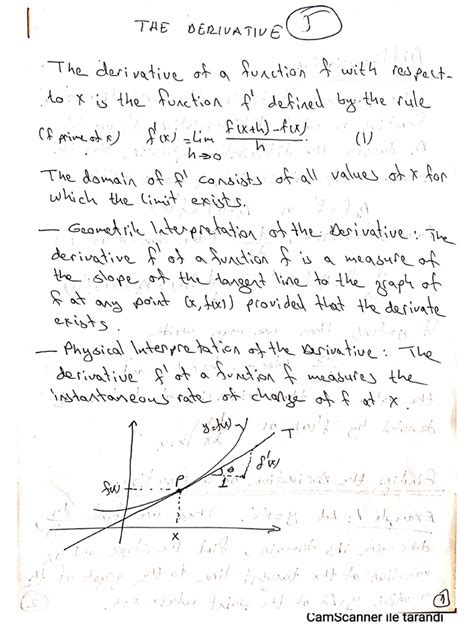 THE DERIVATIVE I
The derivative of a function f with respect
to x is the function f' defined by the rule
(f prime of x) f'(x) = lim h→0 f(x+h)-f(x) / h (1)
The domain of f' consists of all values of x for
which the limit exists.
— Geometrik Interpretation of the Derivative: The
derivative f' of a function f is a measure of
the slope of the tangent line to the graph of
f at any point (x, f(x)) provided that the derivate
exists.
— Physical Interpretation of the Derivative: The
derivative f' of a function f measures the
instantaneous rate of change of f at x.
y=f(x)
T
f'(x)
θ
P
1
f(x)
x
1
CamScanner ile tarandı